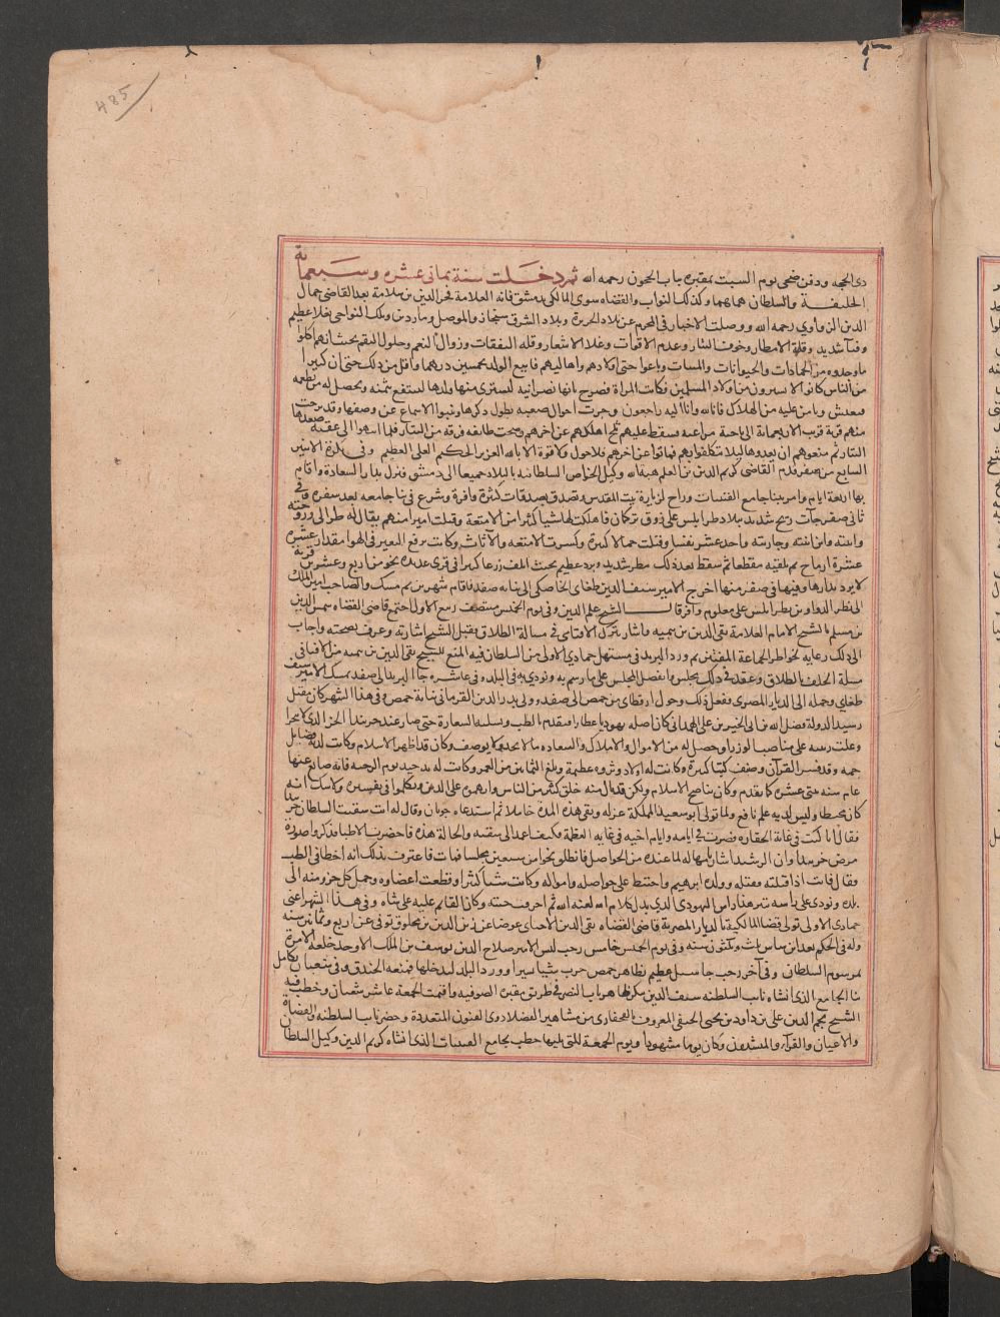 485
ذى الحجه ودفن ضحى يوم السبت بمقبرة باب الحمون رحمه الله ثم دخلت سنة ثمانى عشره وسبعمائة
الخليفة والسلطان هما هما وكذلك النواب والقضاه سوى المالكى بدمشق فانه العلامة فخر الدين بن سلامة بعد القاضى جمال
الدين الزواوي رحمه الله ووصلت الاخبار فى المحرم عن بلاد الجزيرة وبلاد الشرق سنجار والموصل وماردين وتلك النواحى بغلا عظيم
وفنآ شديد وقلة الامطار وخوف التتار وعدم الاقوات وغلاء الاسعار وقلة النفقات وزوال النعم وحلول النقم بحيث انهم اكلوا
ما وجدوه من الجمادات والحيوانات والميتات وباعوا حتى اولادهم واهاليهم فابيع الولد بخمسين درهما واقل من ذلك حتى ان كثيرا
من الناس كانوا لا يشترون من اولاد المسلمين فكانت المراة تصرح بانها نصرانية ليشترى منها ولدها لتنتفع بثمنه ويحصل له من يطعمه
فيعيش وتامن عليه من الهلاك فانا لله وانا اليه راجعون وجرت احوال صعبه يطول ذكرها وتنبوا الاسماع عن وصفها وقد ترحلت
منهم فرقة قريب الاربعمائة الى ناحية مراغه فسقط عليهم ثلج اهلكهم عن اخرهم وصحبت طائفه فرقه من التتار فلما انتهوا الى عقبه صعدها
التتار ثم منعوهم ان يصعدوها ليلا يتكلفوا بهم فماتوا عن اخرهم فلا حول ولا قوة الا بالله العزيز الحكيم العلى العظيم وفى بكرة الاثنين
السابع من صفر قدم القاضى كريم الدين بن العلم هبة الله وكيل الخاص السلطانيه بالبلاد جميعها الى دمشق فنزل بدار السعادة واقام
بها اربعة ايام وامر ببنا جامع القبيبات وراح لزيارة بيت المقدس وتصدق بصدقات كثيرة وافرة وشرع فى بنا جامعه بعد سفره وفى
ثانى صفر جات ريح شديده ببلاد طرابلس على ذوق تركان فاهلكت لها شيا كثيرا من الامتعة وقتلت اميرا منهم يقال له طرالى وزوجته
وابنته وابن ابنته وجاريته واحد عشر نفسا وقتلت جمالا كثيرة وكسرت الامتعه والآثاث وكانت ترفع البعير فى الهوا مقدار عشرة
عشرة ارماح ثم تلقيه مقطعا ثم سقط بعد ذلك مطر شديد وبرد عظيم بحيث اتلف زرعا كثيرا فى قرى عديده نحو من اربع وعشرين قرية
لا يرد بدارها وفيها فى صفر منها اخرج الامير سيف الدين طغاى الخاصكى الى نيابه صفد فاقام شهرين ثم مسك والصاحب امين الملك
الى نظر الدواوين بطرابلس على معلوم وافر قال الشيخ علم الدين وفى يوم الخميس منتصف ربيع الاول اجتمع قاضى القضاه شمس الدين
بن مسلم بالشيخ الامام العلامة تقى الدين بن تيميه واشار بترك الافتا فى مسالة الطلاق فقبل الشيخ اشارته وعرف نصيحته واجاب
الى ذلك رعاية لخواطر الجماعة المفتين ثم ورد البريد فى مستهل جمادى الاولى من السلطان فيه المنع للشيخ تقى الدين بن تيميه من الافتا فى
مسلة الحلف بالطلاق وعقد فى ذلك مجلس وانفصل المجلس على ما رسم به ونودى به فى البلد وفى عاشره جا البريد الى صفد بمسك الامير سيف
طغاى وحمله الى الديار المصرية ففعل ذلك وحول ارقطاى من حمص الى صفد وولى بدر الدين القرمانى نيابة حمص وفى هذا الشهر كان مقتل
رشيد الدولة فضل الله بن ابى الخير بن على الهمدانى كان اصله يهوديا عطارا فتقدم بالطب وشملته السعادة حتى صار عند خربندا الجزء الذى لا يتجزا
وعلت رتبته على مناصب الوزرا وحصل له من الاموال والاملاك والسعاده ما لا يحد ولا يوصف وكان قد اظهر الاسلام وكانت لديه فضايل
جمه وقد فسر القرآن وصنف كتبا كثيرة وكانت له اولاد وثروه عظيمة وبلغ الثمانين من العمر وكانت له يد جيده يوم الرحبه فانه صانع عنها
عام سنه حتى عشره كما تقدم وكان يناصح الاسلام ولكن قد نال منه خلق كثير من الناس واتهموه على الدين وتكلموا فى تفسيره ولا شك انه
كان مخبطا وليس لديه علم نافع ولما تولى ابو سعيد المملكة عزله وبقى هذه المدة خاملا ثم استدعاه جوبان وقال له انت سقيت السلطان خربندا
فقال انا كنت فى غاية الحقاره فصرت فى ايامه وايام اخيه فى غاية العظمة فكيف اعمد الى سقيه والحالة هذه فاحضرت الاطبا فذكروا صورة
مرض خربندا وان الرشيد اشار باسهاله لما عنده من الحواصل فانطلق نحو من سبعين مجلسا فمات فاعترف بذلك انه اخطا فى الطب
وقال فانت اذا قتلته فقتله وولده ابراهيم واحتيط على حواصله وامواله وكانت شيئا كثيرا وقطعت اعضاوه وحمل كل جزء منه الى
بلده ونودى على راسه بتبريز هذا راس اليهودى الذى بدل كلام الله لعنه الله ثم احرقت جثته وكان القائم عليه على شاه وفى هذا الشهر اعنى
جمادى الاولى تولى قضا المالكية بالديار المصرية قاضى القضاه تقى الدين الاخناى عوضا عن زين الدين بن مخلوف توفى عن اربع وثمانين سنه
وله فى الحكم بعد ابن شاس ثلث وثلثون سنه وفى يوم الخميس خامس رجب لبس الامير صلاح الدين يوسف بن الملك الاوحد خلعة الامرة
بمرسوم السلطان وفى آخر رجب جا سيل عظيم بظاهر حمص خرب شيا يسيرا وورد البلد ليدخلها فمنعه الخندق وفى شعبان تكامل
بنا الجامع الذى انشاه نايب السلطنه سيف الدين تنكز ظاهر باب النصر فى طريق مقبرة الصوفيه واقيمت الجمعة عاشر شعبان وخطب فيه
الشيخ نجم الدين على بن داود بن يحيى الحنفى المعروف بالقحفازى من مشاهير الفضلا ذوى الفنون المتعددة وحضر نايب السلطنه والقضاة
والاعيان والقرآ والمنشدون وكان يوما مشهودا ويوم الجمعة التى يليها خطب بجامع القبيبات الذى انشاه كريم الدين وكيل السلطان